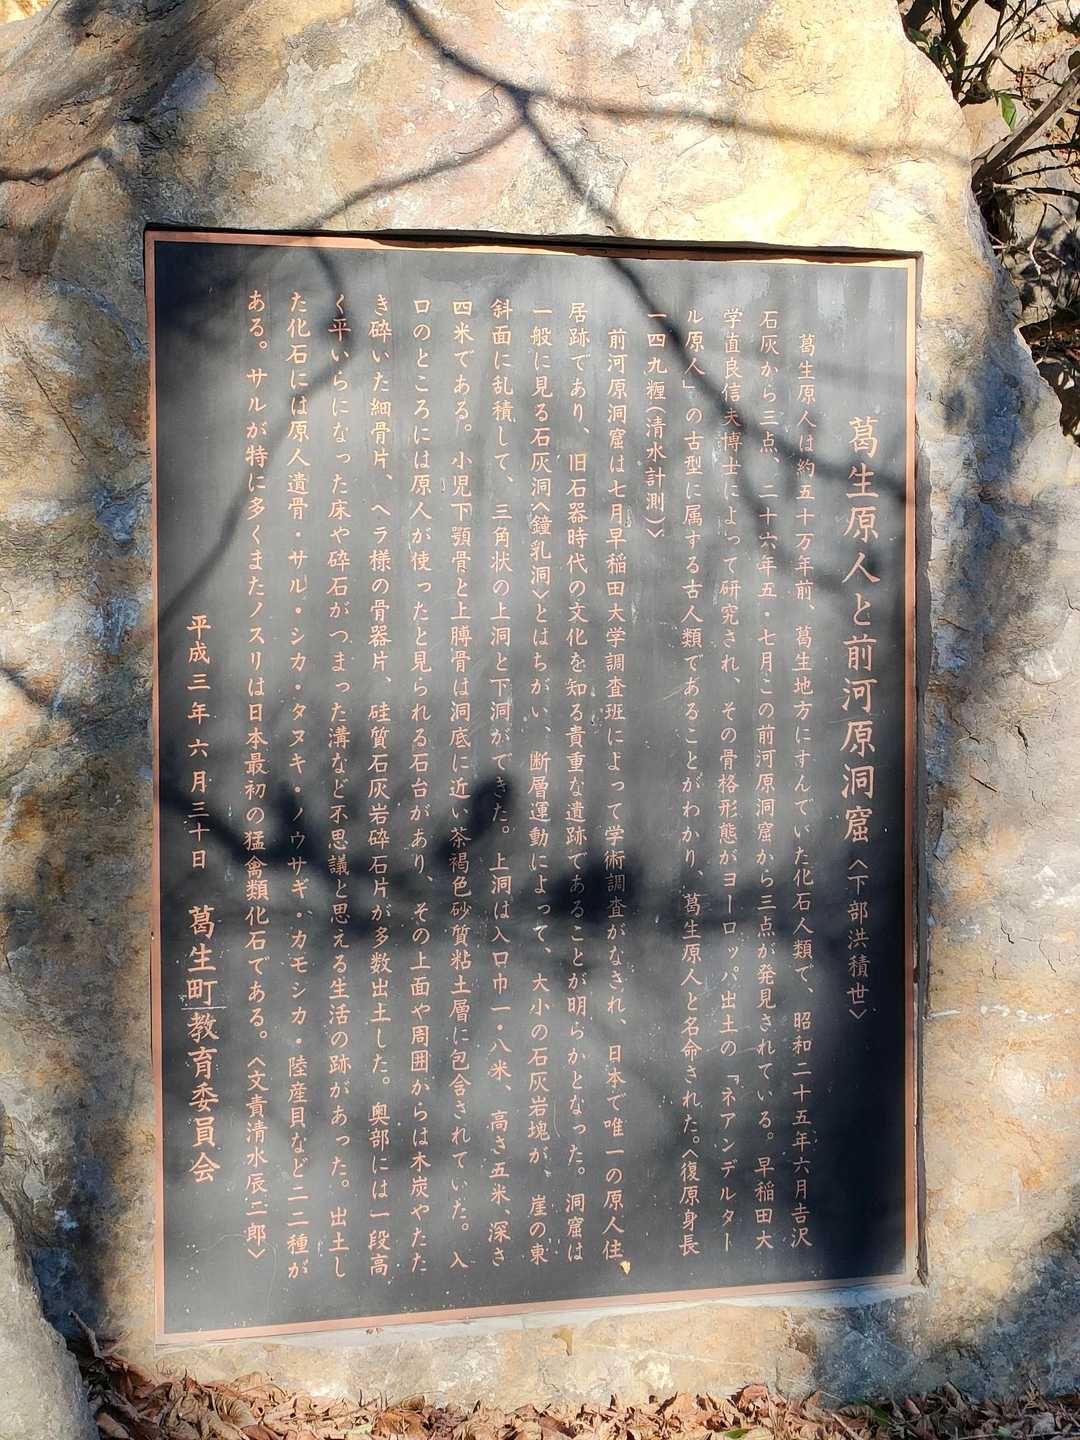 葛生原人と前河原洞窟〈下部洪積世〉
葛生原人は約五十万年前、葛生地方にすんでいた化石人類で、昭和二十五年六月吉沢
石灰から三点、二十六年五・七月この前河原洞窟から三点が発見されている。早稲田大
学直良信夫博士によって研究され、その骨格形態がヨーロッパ出土の「ネアンデルター
ル原人」の古型に属する古人類であることがわかり、葛生原人と名命された。〈復原身長
一四九糎(清水計測)〉
前河原洞窟は七月早稲田大学調査班によって学術調査がなされ、日本で唯一の原人住
居跡であり、旧石器時代の文化を知る貴重な遺跡であることが明らかとなった。洞窟は
一般に見る石灰洞〈鐘乳洞〉とはちがい、断層運動によって、大小の石灰岩塊が、崖の東
斜面に乱積して、三角状の上洞と下洞ができた。上洞は入口巾一・八米、高さ五米、深さ
四米である。小児下顎骨と上膊骨は洞底に近い茶褐色砂質粘土層に包含されていた。入
口のところには原人が使ったと見られる石台があり、その上面や周囲からは木炭やたた
き砕いた細骨片、ヘラ様の骨器片、硅質石灰岩砕石片が多数出土した。奥部には一段高
く平いらになった床や砕石がつまった溝など不思議と思える生活の跡があった。出土し
た化石には原人遺骨・サル・シカ・タヌキ・ノウサギ・カモシカ・陸産貝など二二種が
ある。サルが特に多くまたノスリは日本最初の猛禽類化石である。〈文責清水辰二郎〉
平成三年六月三十日 葛生町教育委員会